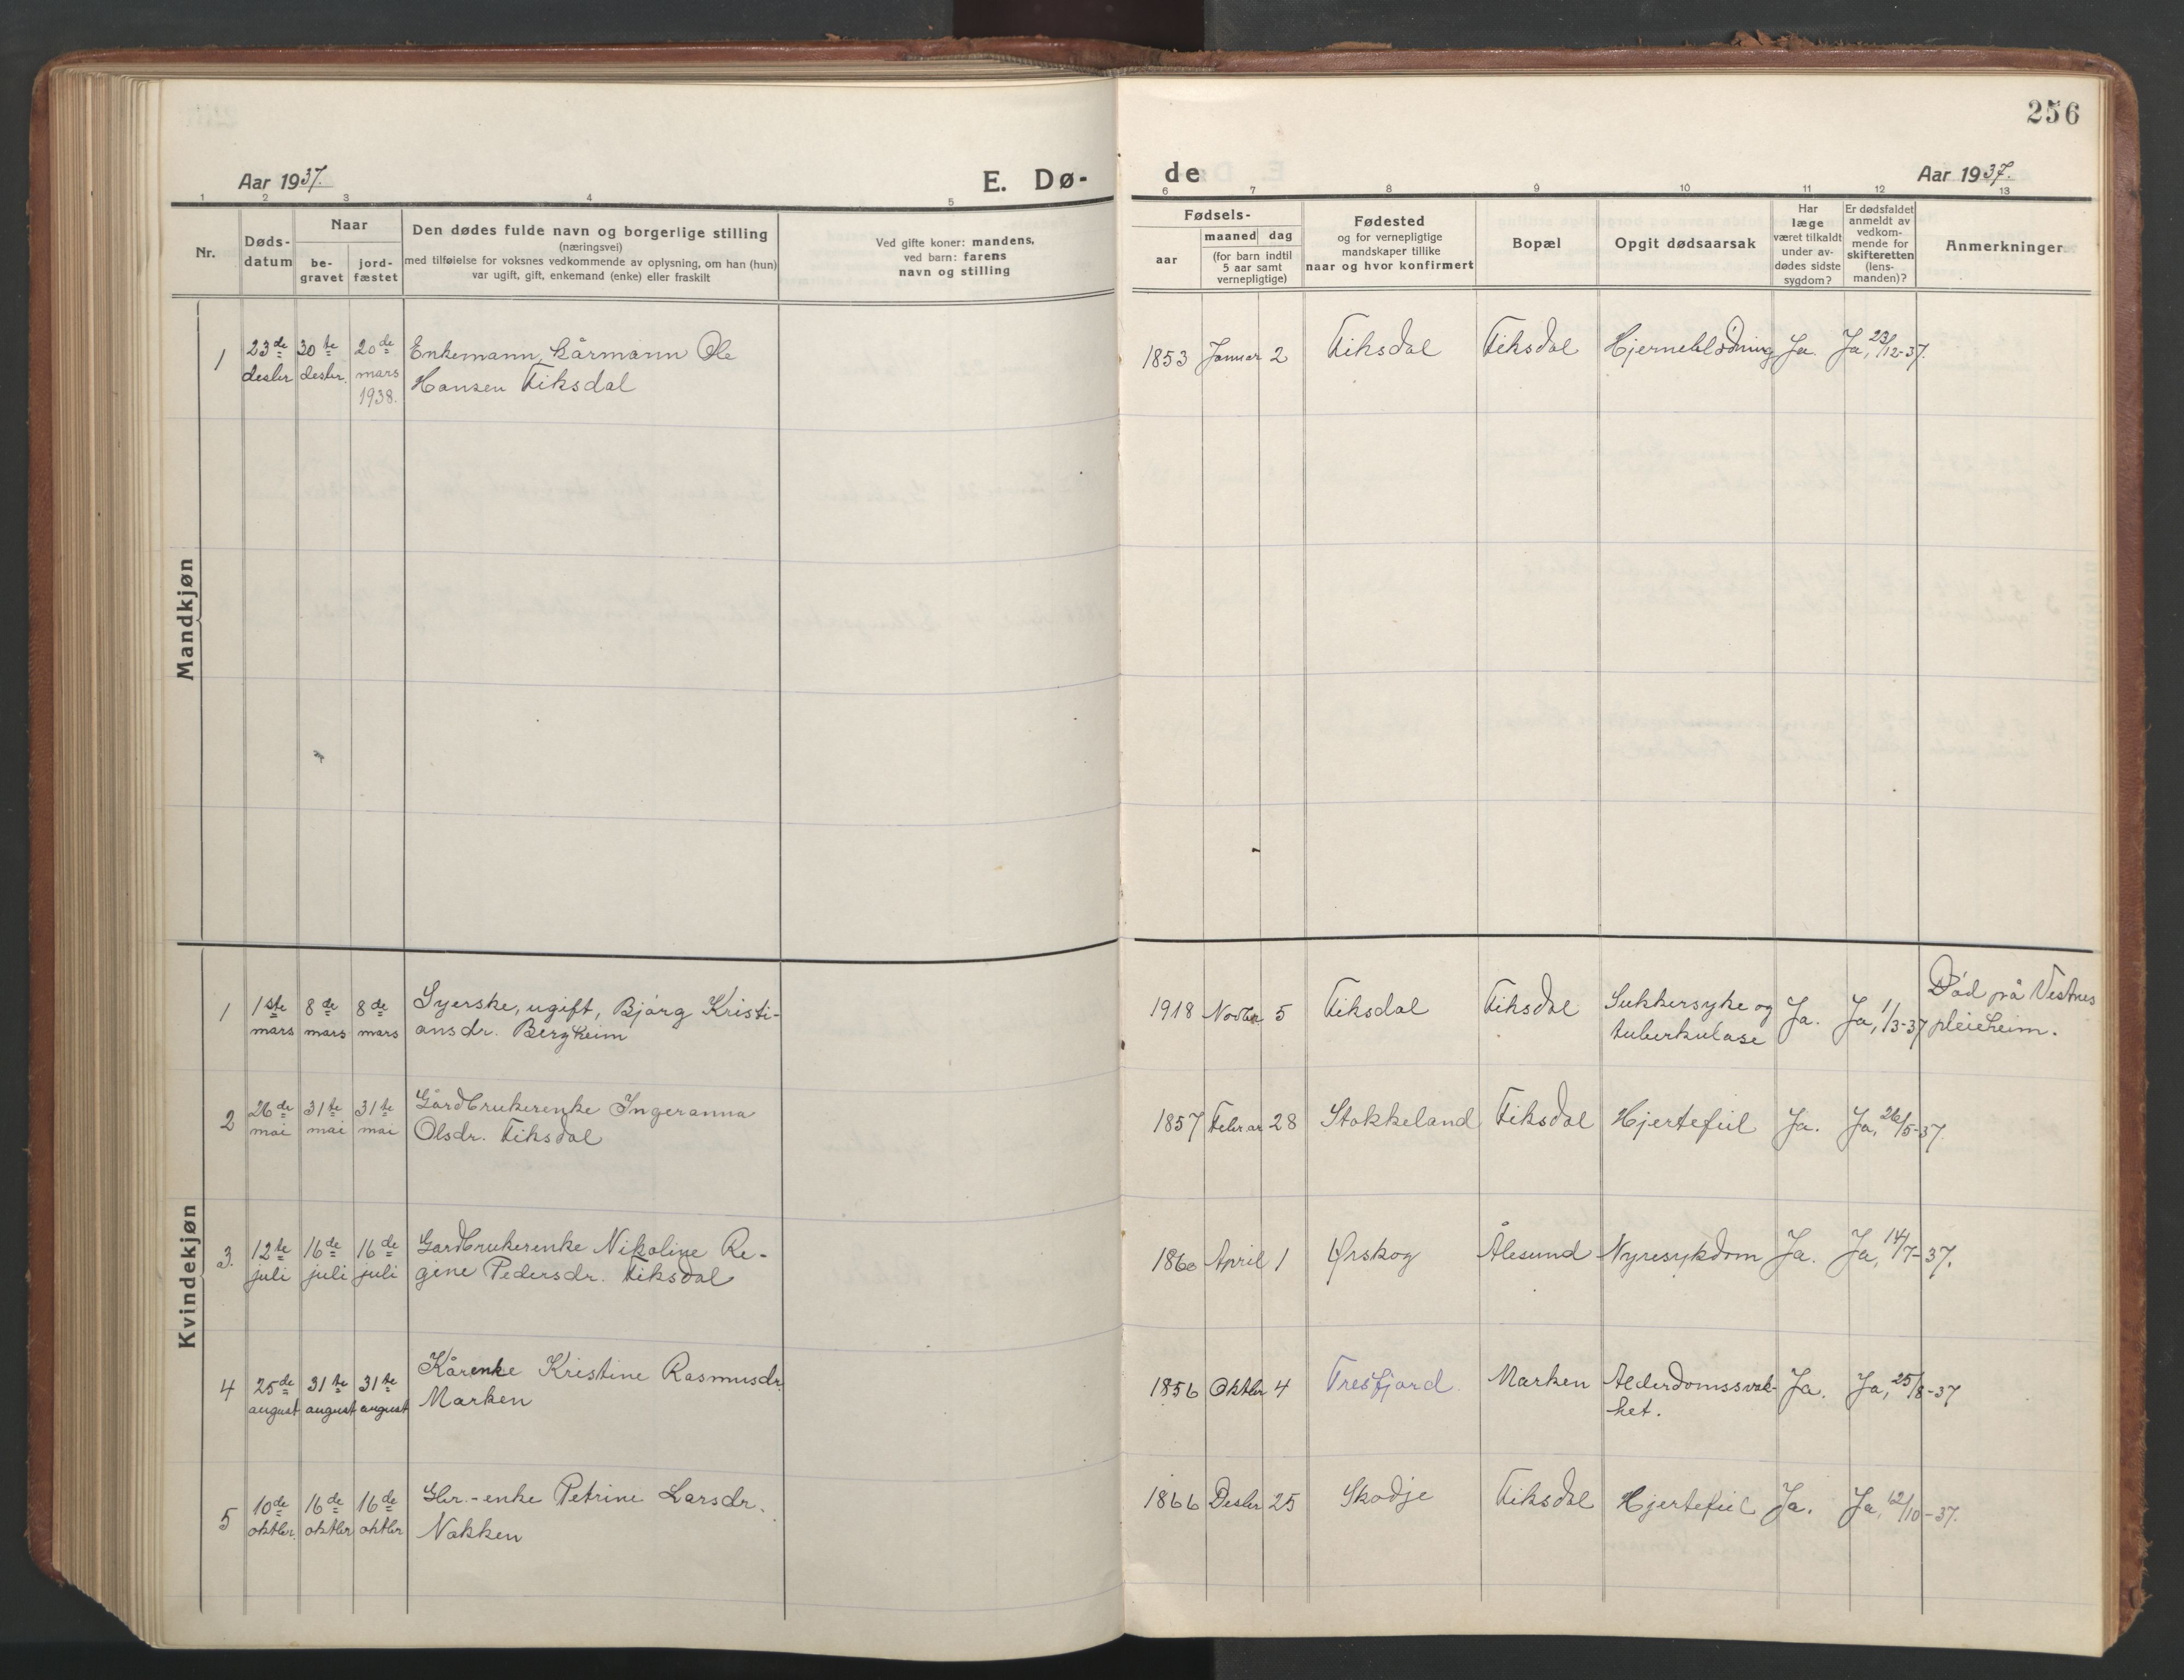 256
Aar 1937.
E. Dø-
de
Aar 1937.
1 2 3 4 5 6 7 8 9 10 11 12 13
Nr.
Døds-
datum
Naar
be-
gravet
jord-
fæstet
Den dødes fulde navn og borgerlige stilling
(næringsvei)
med tilføielse for voksnes vedkommende av oplysning, om han (hun)
var ugift, gift, enkemand (enke) eller fraskilt
Ved gifte koner: mandens,
ved barn: farens
navn og stilling
Fødsels-
aar
maaned dag
(for barn indtil
5 aar samt
vernepligtige)
Fødested
og for vernepligtige
mandskaper tillike
naar og hvor konfirmert
Bopæl
Opgit dødsaarsak
Har
læge
været tilkaldt
under av-
dødes sidste
sygdom?
Er dødsfaldet
anmeldt av
vedkom-
mende for
skifteretten
(lens-
manden)?
Anmerkninger
Mandkjøn
1
23de
desbr
30te
desbr.
20de
mars
1938.
Enkemann, kårmann Ole
Hansen Fiksdal
1853 Januar 2
Fiksdal
Fiksdal
Hjerneblødning
Ja.
Ja, 23/12-37.
Kvindekjøn
1
1ste
mars
8de
mars
8de
mars
Syerske, ugift, Bjørg Kristi-
ansdr. Bergheim
1918 Novbr 5
Fiksdal
Fiksdal
Sukkersyke og
tuberkulose
Ja.
Ja, 1/3-37
Død på Vestnes
pleieheim.
2
26de
mai
31te
mai
31te
mai
Gårdbrukerenke Ingeranna
Olsdr. Fiksdal
1857 Februar 28
Stokkeland
Fiksdal
Hjertefeil
Ja.
Ja, 26/5-37.
3.
12te
juli
16de
juli
16de
juli
Gardbrukerenke Nikoline Re-
gine Pedersdr. Fiksdal
1860 April 1
Ørskog
Ålesund
Nyresykdom
Ja.
Ja, 14/7-37.
4
25de
august
31te
august
31te
august
Kårenke Kristine Rasmusdr.
Marken
1856 Oktbr 4
Tresfjord.
Marken
Alderdomssvak-
het.
Ja.
Ja, 25/8-37
5
10de
oktbr.
16de
oktbr
16de
oktbr
Gbr.-enke Petrine Larsdr.
Nakken
1866 Desbr 25
Skodje
Fiksdal
Hjertefeil
Ja.
Ja, 12/10-37.